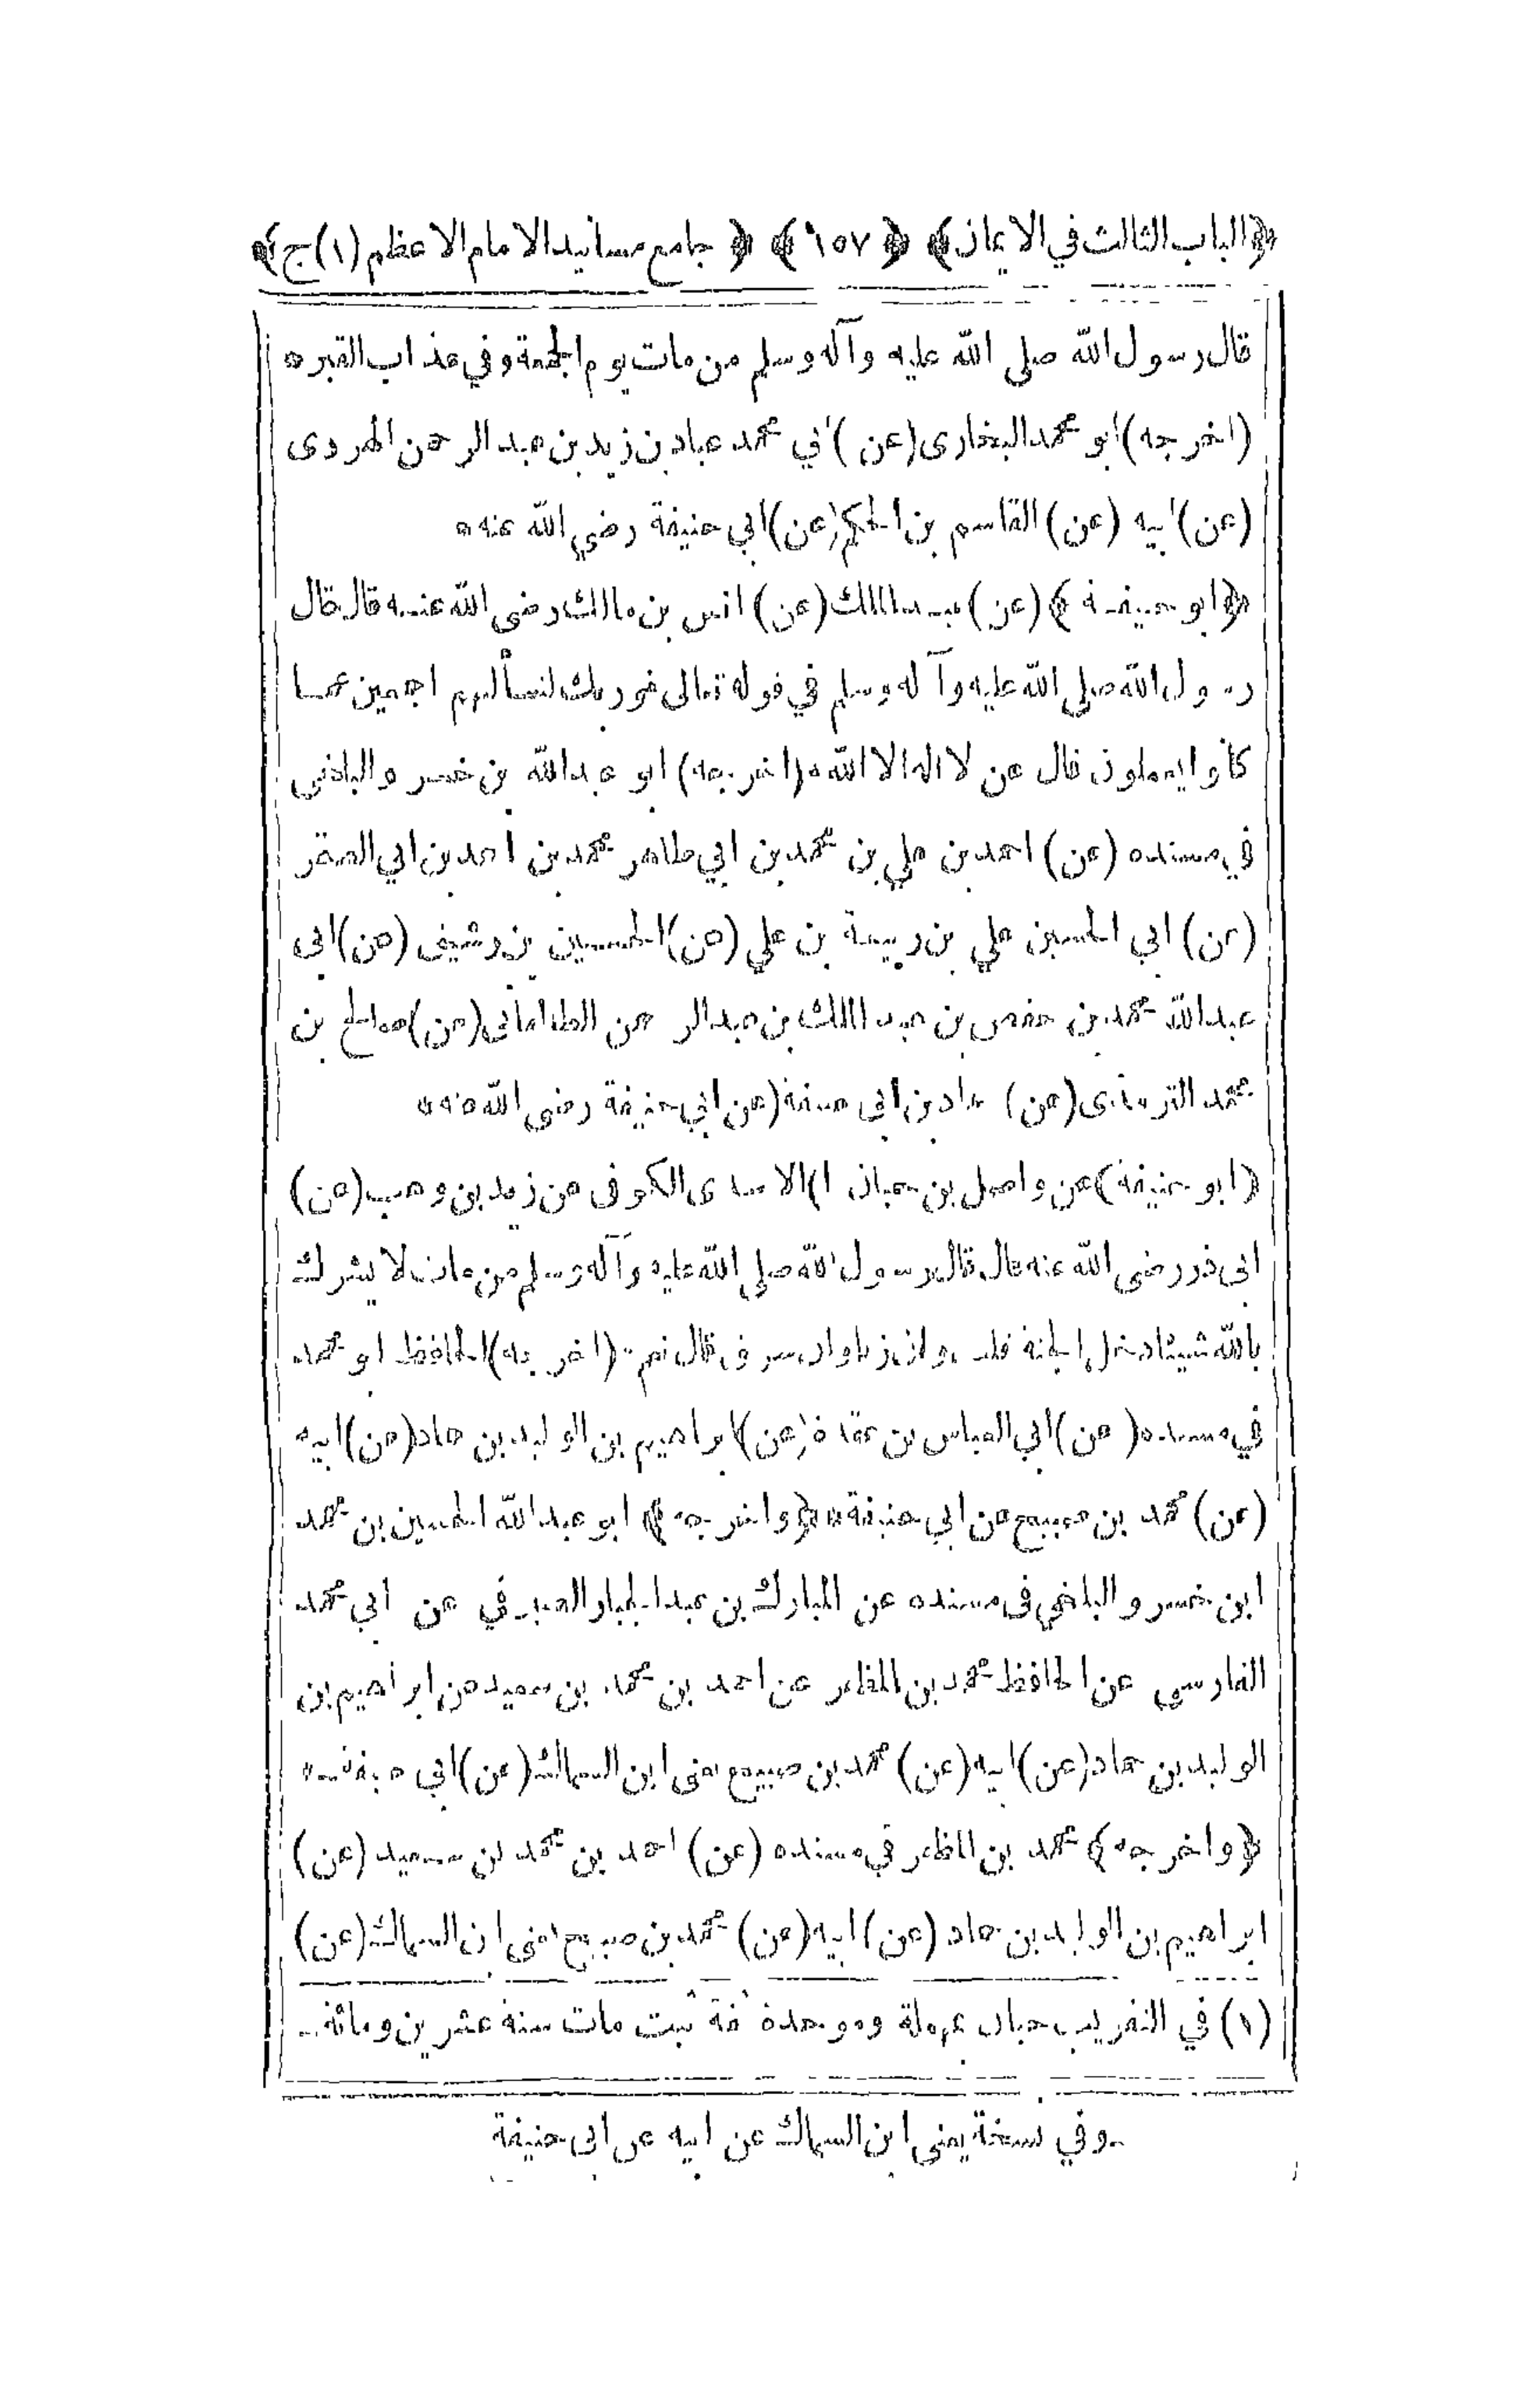 ﴿الباب الثالث في الايمان﴾ ﴿١٥٧﴾ ﴿جامع مسانيد الامام الاعظم (١) ج﴾
قال رسول الله صلى الله عليه وآله وسلم من مات يوم الجمعة وقي عذاب القبر ه
(اخرجه) ابو محمد البخارى (عن) ابي محمد عباد بن زيد بن عبد الرحمن الهروى
(عن) ابيه (عن) القاسم بن الحكم (عن) ابي حنيفة رضي الله عنه ه
﴿ابو حنيفة﴾ (عن) عبد الملك (عن) انس بن مالك رضى الله عنه قال قال
رسول الله صلى الله عليه وآله وسلم في قوله تعالى فو ربك لنسألنهم اجمعين عما
كانوا يعملون قال عن لا اله الا الله ه (اخرجه) ابو عبد الله بن خسرو البلخى
في مسنده (عن) احمد بن علي بن محمد بن ابي طاهر محمد بن احمد بن ابي الصقر
(عن) ابي الحسين علي بن ربيعة بن علي (عن) الحسين بن رشيق (عن) ابى
عبد الله محمد بن حفص بن عبد الملك بن عبد الرحمن الطالقانى (عن) صالح بن
محمد الترمذى (عن) حماد بن ابى حنيفة (عن ابي حنيفة رضى الله عنه ه
(ابو حنيفة) عن واصل بن حبان (١) الاسدى الكوفى عن زيد بن وهب (عن)
ابى ذر رضى الله عنه قال قال رسول الله صلى الله عليه وآله وسلم من مات لا يشرك
بالله شيئا دخل الجنة قلت وان زنا وان سرق قال نعم ه (اخرجه) الحافظ ابو محمد
في مسنده (عن) ابي العباس بن عقدة (عن) ابراهيم بن الوليد بن حماد (عن) ابيه
(عن) محمد بن صبيح عن ابي حنيفة ه ﴿واخرجه﴾ ابو عبد الله الحسين بن محمد
ابن خسرو البلخي فى مسنده عن المبارك بن عبد الجبار الصيرفي عن ابي محمد
الفارسى عن الحافظ محمد بن المظفر عن احمد بن محمد بن سعيد عن ابراهيم بن
الوليد بن حماد (عن) ابيه (عن) محمد بن صبيح يعنى ابن السماك (عن) ابي حنيفة ه
﴿واخرجه﴾ محمد بن المظفر في مسنده (عن) احمد بن محمد بن سعيد (عن)
ابراهيم بن الوليد بن حماد (عن) ابيه (عن) محمد بن صبيح يعنى ابن السماك (عن)
(١) في التقريب حبان بمهملة وموحدة ثقة ثبت مات سنة عشرين ومائة ..
.وفي نسخة يعنى ابن السماك عن ابيه عن ابى حنيفة